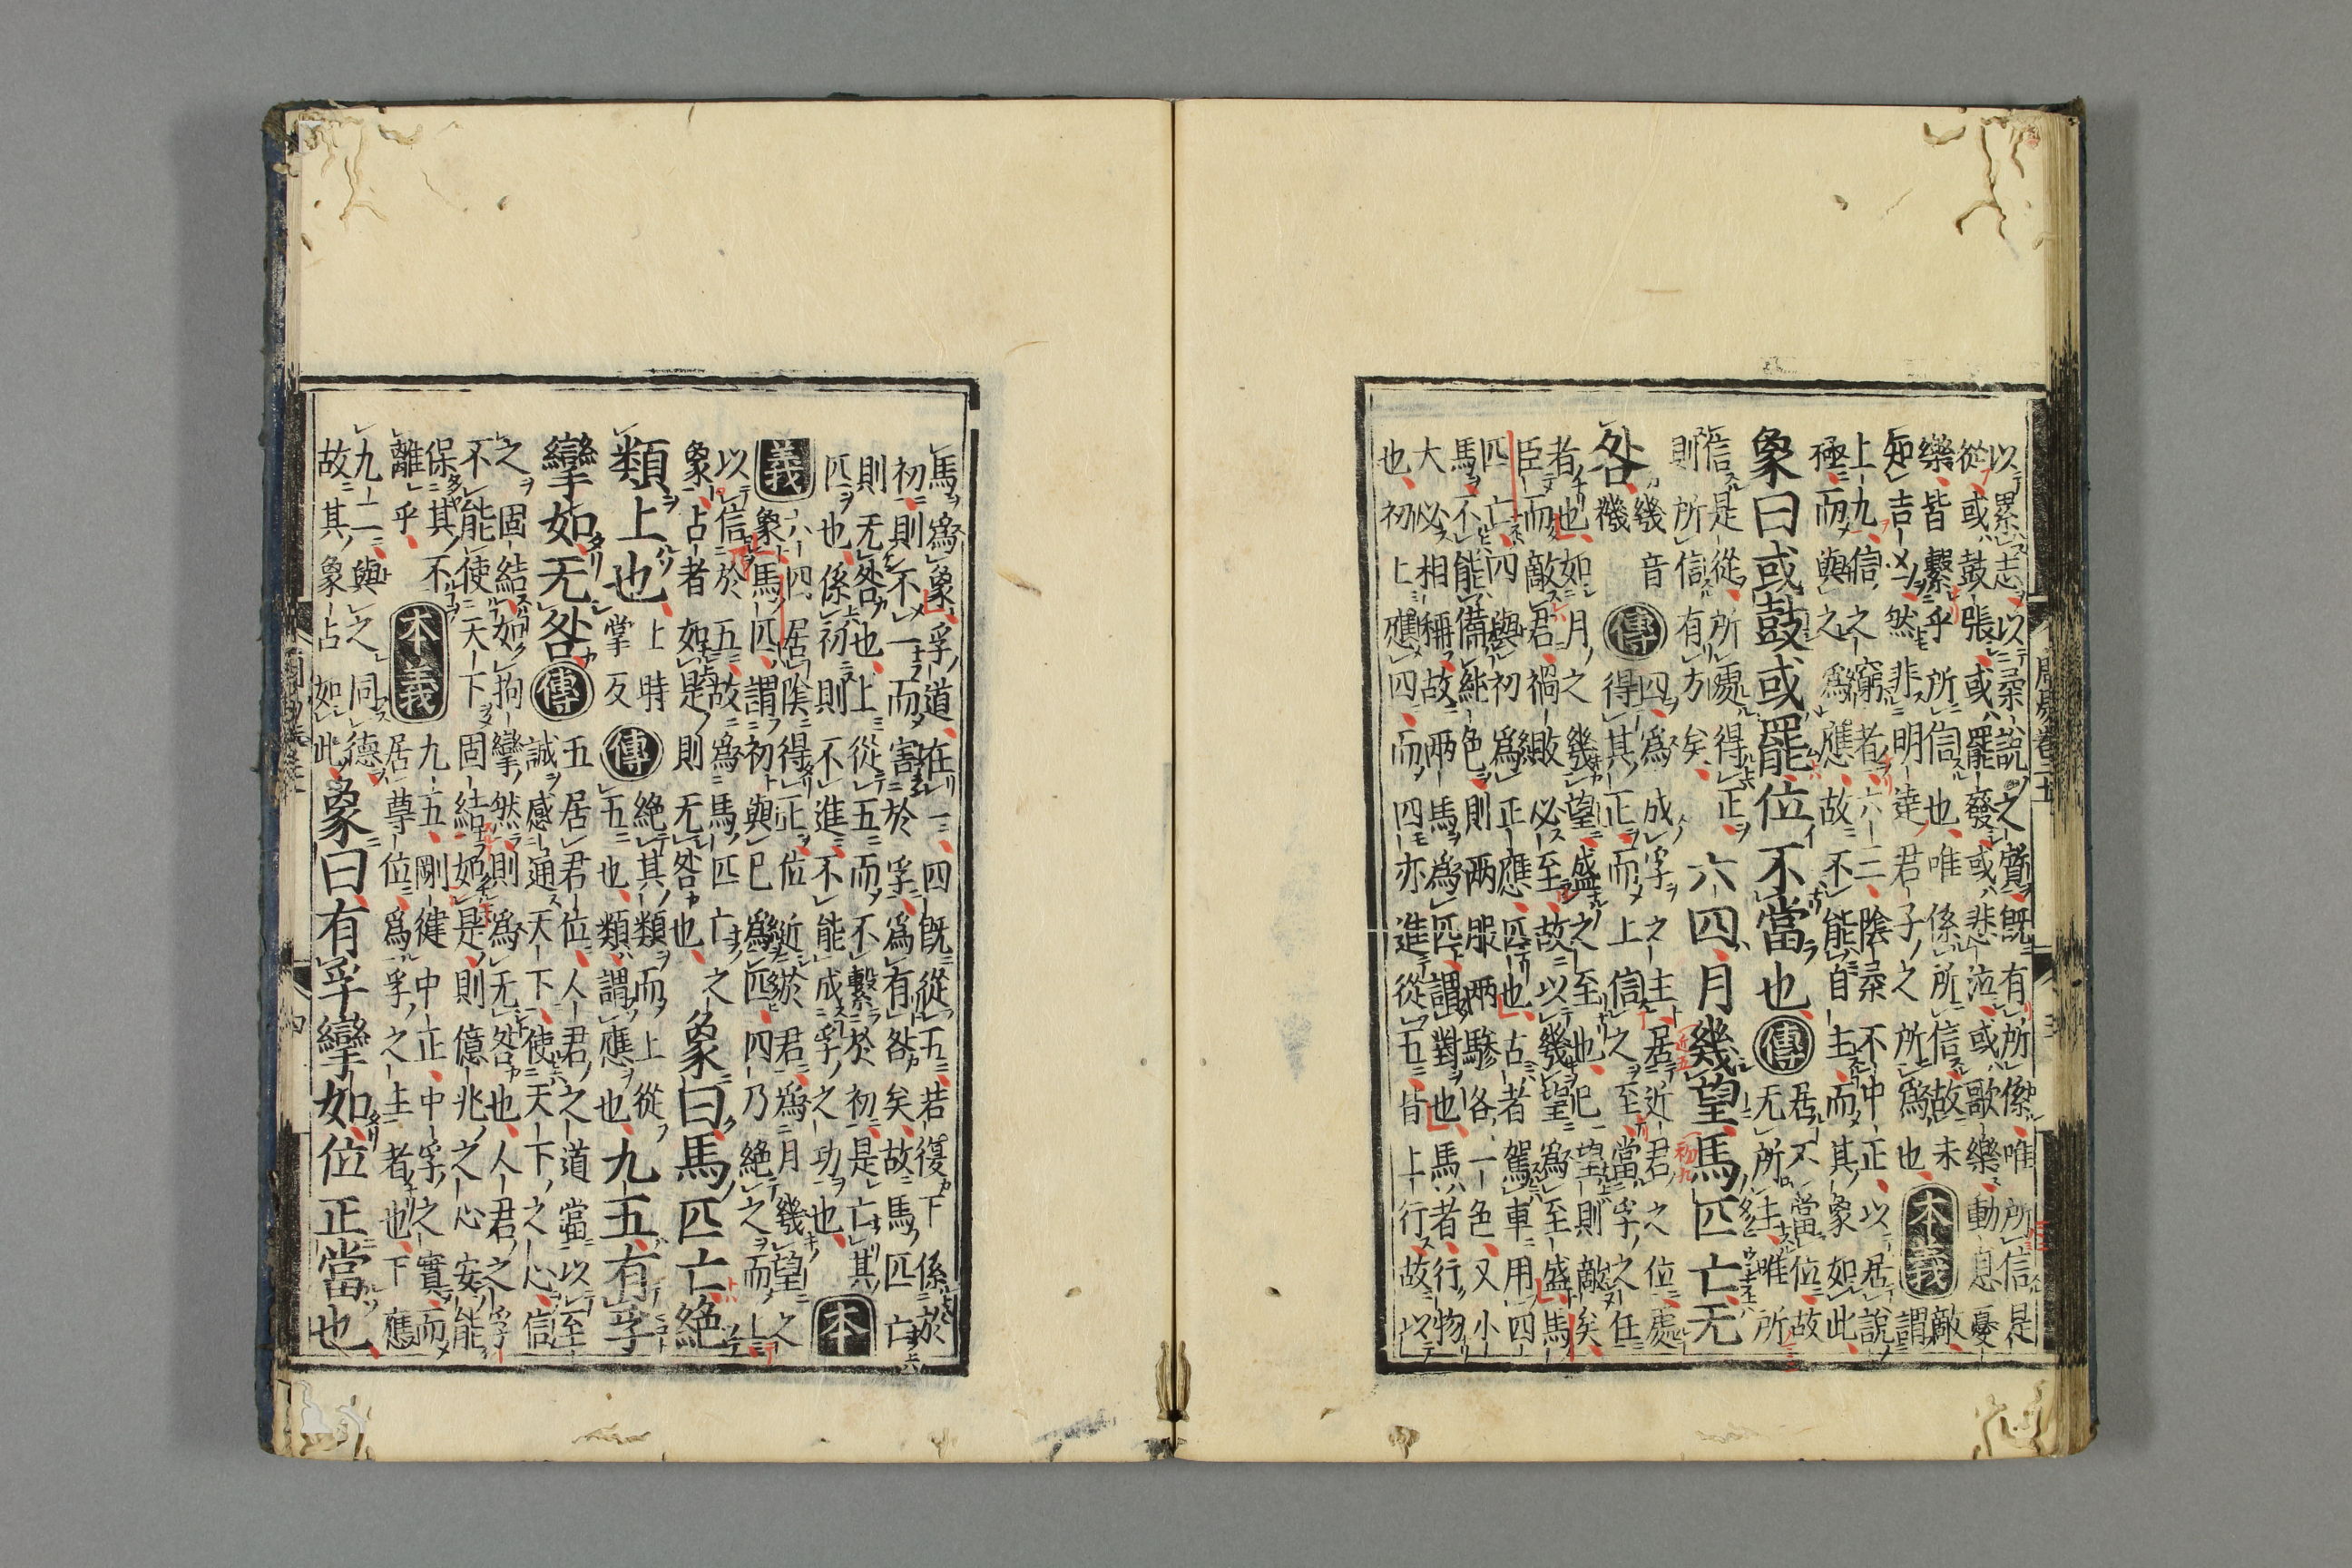 以累志以柔說之質旣有所係唯所信是
從或鼓張或罷廢或悲泣或歌樂動息憂
樂皆繫乎所信也唯係所信故未
知吉凶然非明達君子之所爲也
本義
敵
謂
上九信之窮者六三陰柔不中正以居說
極而與之爲應故不能自主而其象如此
象曰或鼓或罷位不當也
傳
居不當位故
无所主唯所
信是從所處得正
則所信有方矣
六四月幾望馬匹亡无
近五
初九
咎
幾音
機
傳
四爲成孚之主居近君之位處
得其正而上信之至當孚之任
者也如月之幾望盛之至也已望則敵矣
臣而敵君禍敗必至故以幾望爲至盛馬
匹亡四與初爲正應匹也古者駕車用四
馬不能備純色則兩服兩驂各一色又小
大必相稱故兩馬爲匹謂對也馬者行物
也初上應四而四亦進從五皆上行故以
馬爲象孚道在一四旣從五若復下係於
初則不一而害於孚爲有咎矣故馬匹亡
則无咎也上從五而不繫於初是亡其
匹也係初則不進不能成孚之功也
本
義
六四居陰得正位近於君爲月幾望之
象馬匹謂初與己爲匹四乃絶之而上
以信於五故爲馬匹亡之
象占者如是則无咎也
象曰馬匹亡絶
類上也
上時
掌反
傳
絶其類而上從
五也類謂應也
九五有孚
攣如无咎
傳
五居君位人君之道當以至
誠感通天下使天下之心信
之固結如拘攣然則爲无咎也人君之孚
不能使天下固結如是則億兆之心安能
保其不
離乎
本義
九五剛健中正中孚之實而
居尊位爲孚之主者也下應
九二與之同德
故其象占如此
象曰有孚攣如位正當也